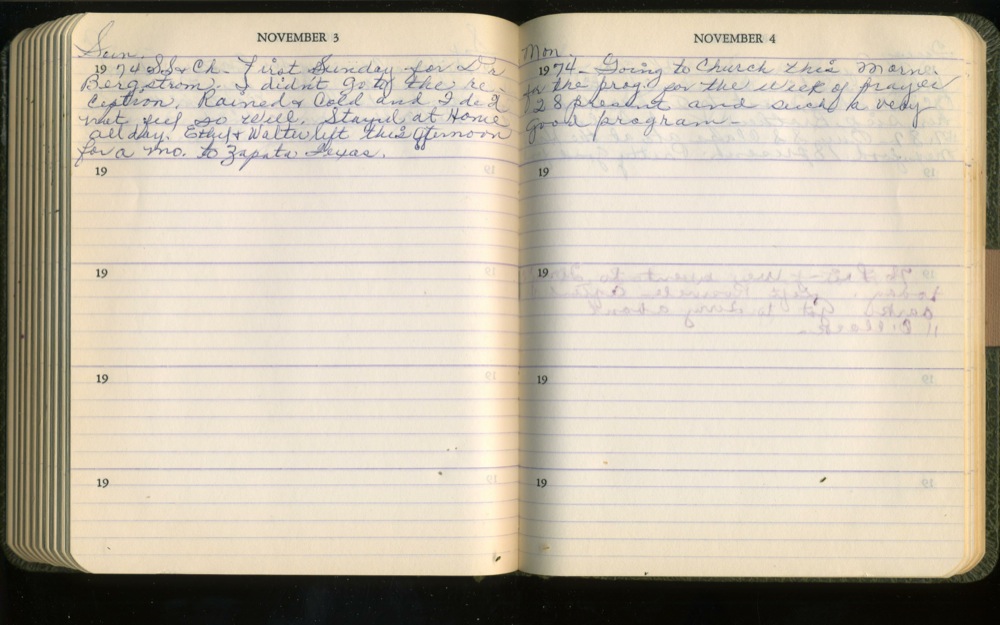 NOVEMBER 3
Sun.
1974 SS & Ch - First Sunday for Dr
Bergstrom. I didn't go to the re-
ception. Rained & Cold and I did
not feel so well. Stayed at Home
all day. Ethel & Walter left this afternoon
for a mo. to Zapata Texas.
19
19
19
19
NOVEMBER 4
Mon.
1974 - Going to Church this Morn.
for the prog. for the Week of Prayer
28 present and such a very
good program -
19
19
19
19